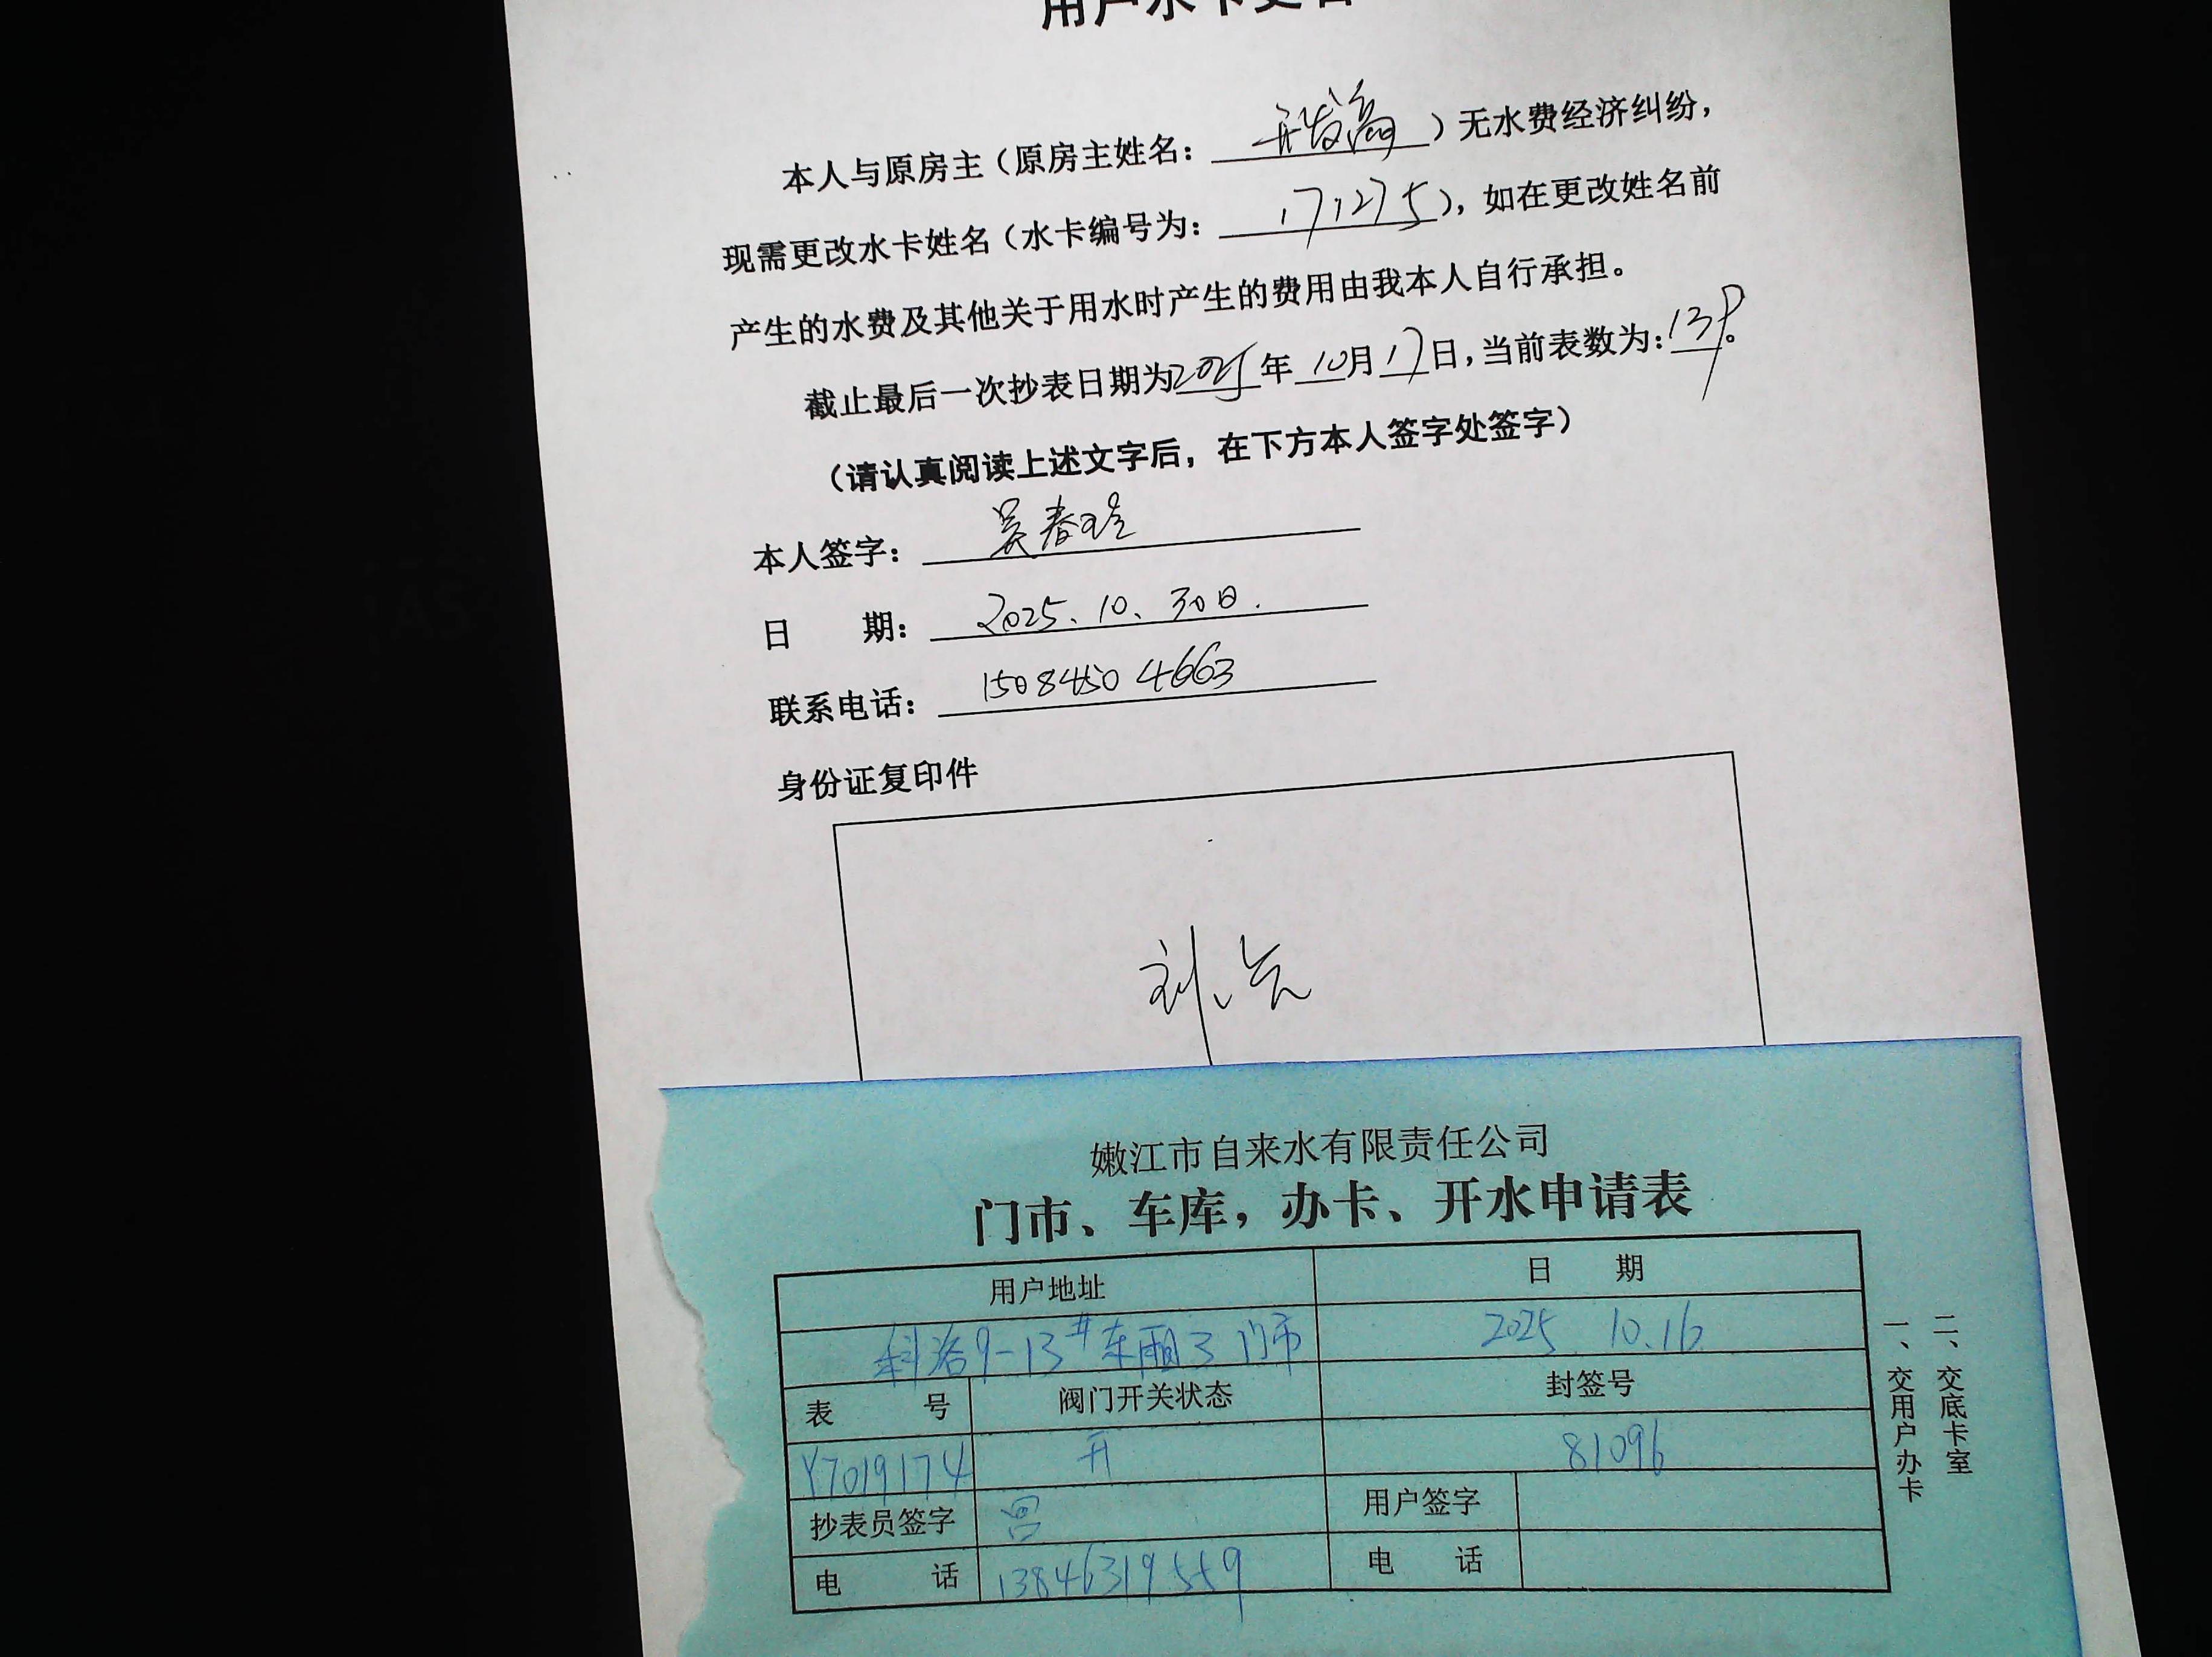 用户水卡更名
本人与原房主（原房主姓名：开发商）无水费经济纠纷，
现需更改水卡姓名（水卡编号为：171275），如在更改姓名前
产生的水费及其他关于用水时产生的费用由我本人自行承担。
截止最后一次抄表日期为2025年10月17日，当前表数为：139。
（请认真阅读上述文字后，在下方本人签字处签字）
本人签字：吴春
日 期：2025、10、30日.
联系电话：15084504663
身份证复印件
嫩江市自来水有限责任公司
门市、车库，办卡、开水申请表
用户地址 日 期
科洛9-13#车厢3门市 2025.10.16
表 号 阀门开关状态 封签号
Y7019174 开 81096
抄表员签字 用户签字
电 话 13846319559 电 话
一、交用户办卡
二、交底卡室